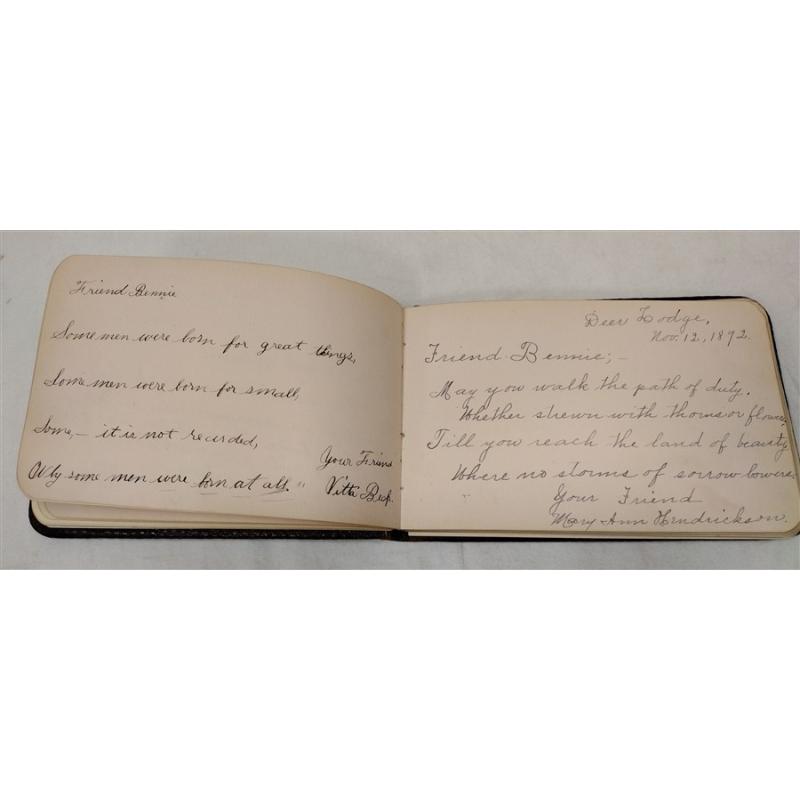 Friend Bennie
Some men were born for great things,
Some men were born for small,
Some,— it is not recorded,
Why some men were born at all."
Your Friend
Vitta
Deer Lodge,
Nov. 12, 1892.
Friend Bennie;—
May you walk the path of duty.
Whether strewn with thorns or flowers,
Till you reach the land of beauty
Where no storms of sorrow lowers.
Your Friend
Mary Ann Hendrickson.